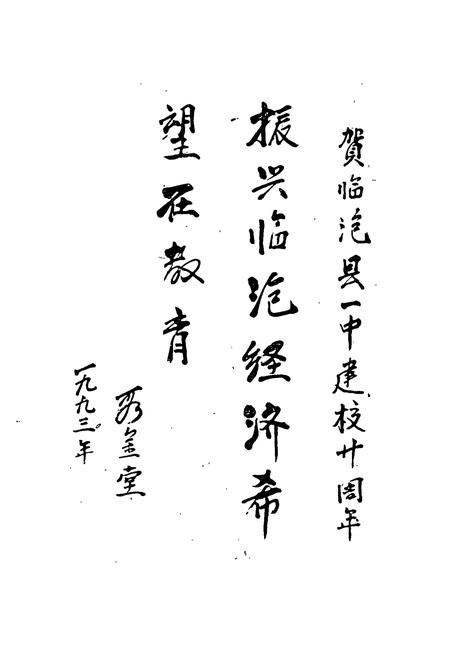 賀临沧县一中建校廿周年
振兴临沧经济希
望在教育
金堂
一九九三年